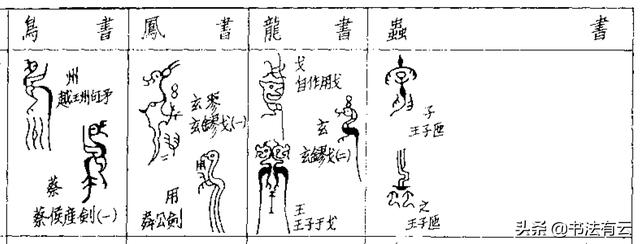 鳥書
鳳書
龍書
蟲書
州
越王州句矛
蔡
蔡侯產劍(一)
玄翏
玄鏐戈(一)
用
戈
自作用戈
玄
玄鏐戈(二)
王
王子于戈
子
王子匜
之
王子匜
头条 @书法有云